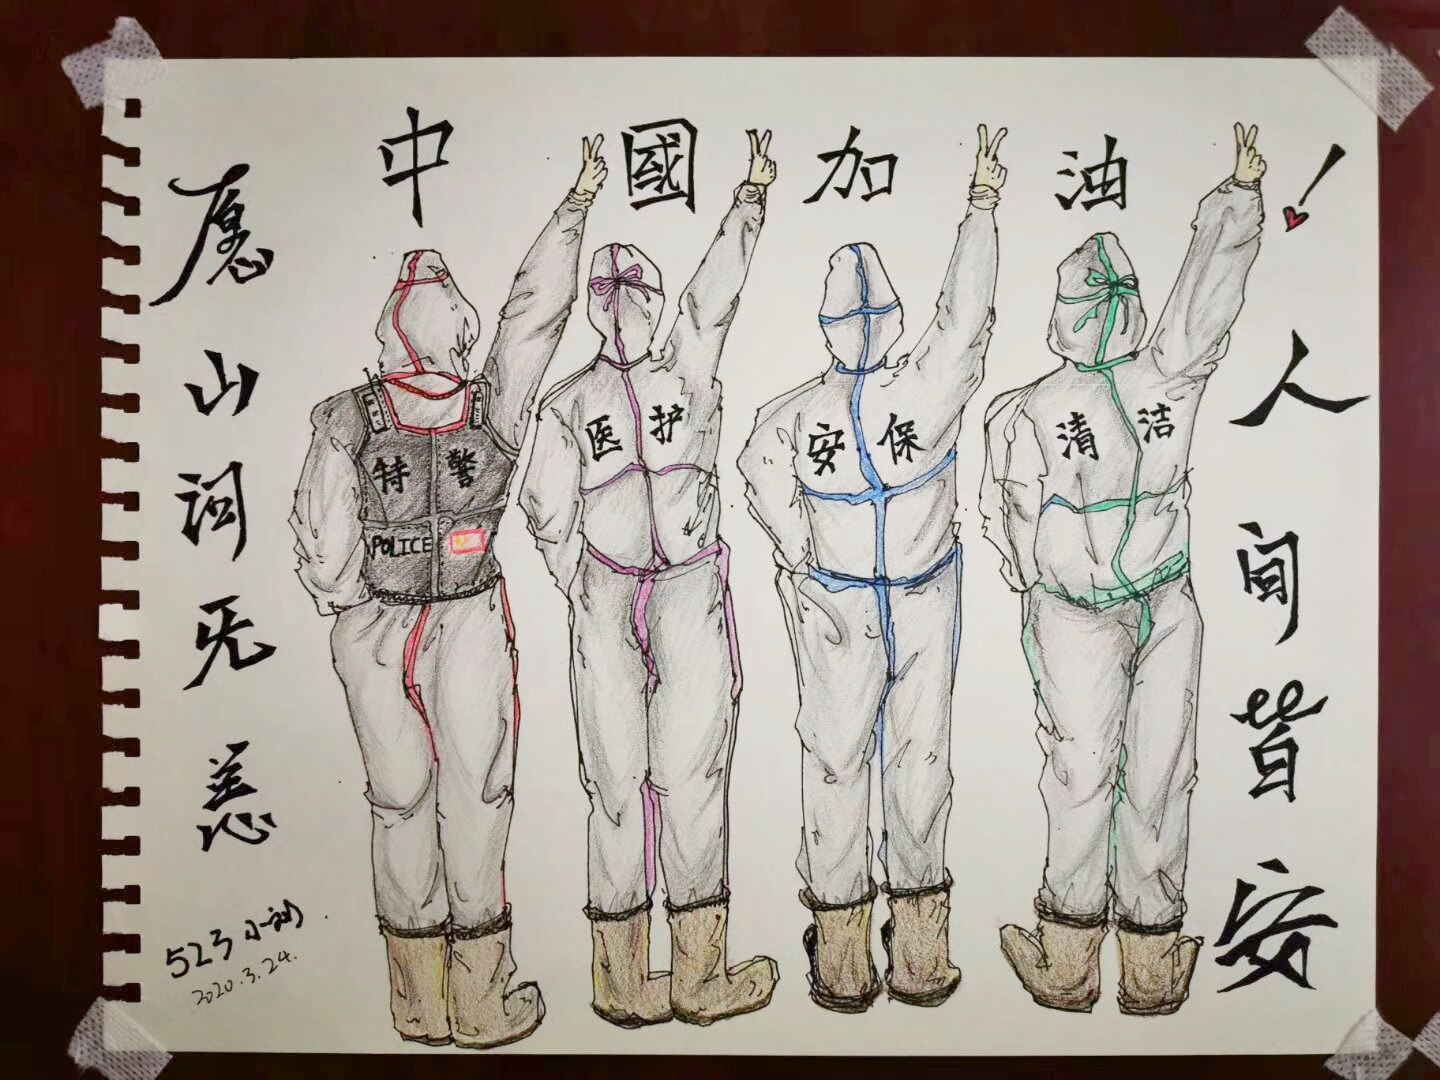 中國加油！
愿山河无恙
人间皆安
特警
POLICE
医护
安保
清洁
523小刘
2020.3.24.